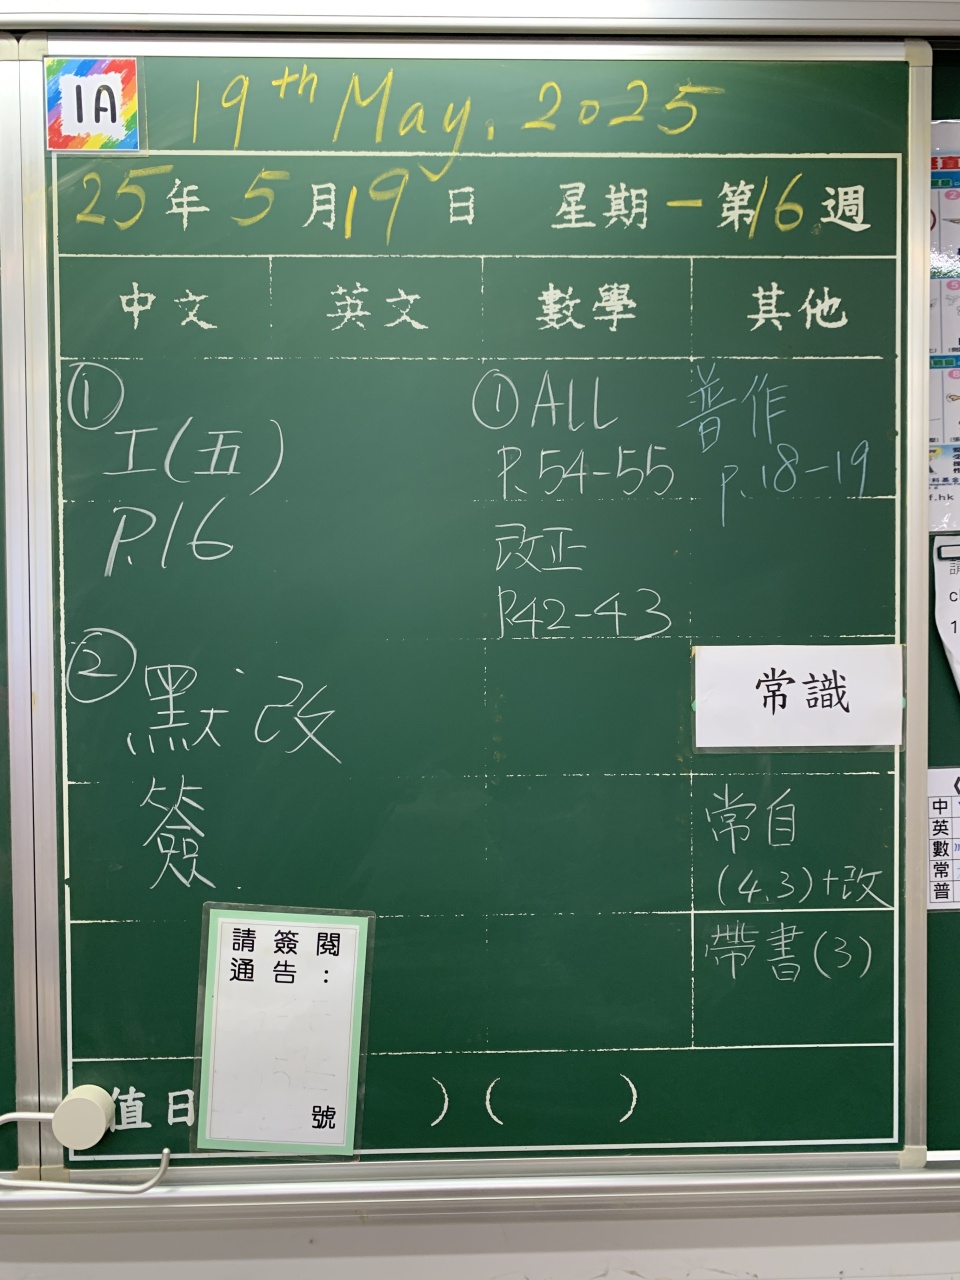 1A
19th May, 2025
25年5月19日 星期一 第16週
中文 英文 數學 其他
①
工(五)
P.16
②
默改
簽
①ALL
P.54-55
改正
P.42-43
普作
p.18-19
常識
常自
(4.3)+改
帶書(3)
請簽閱
通告:
號
值日
) ( )
f.hk
中
英
數
常
普